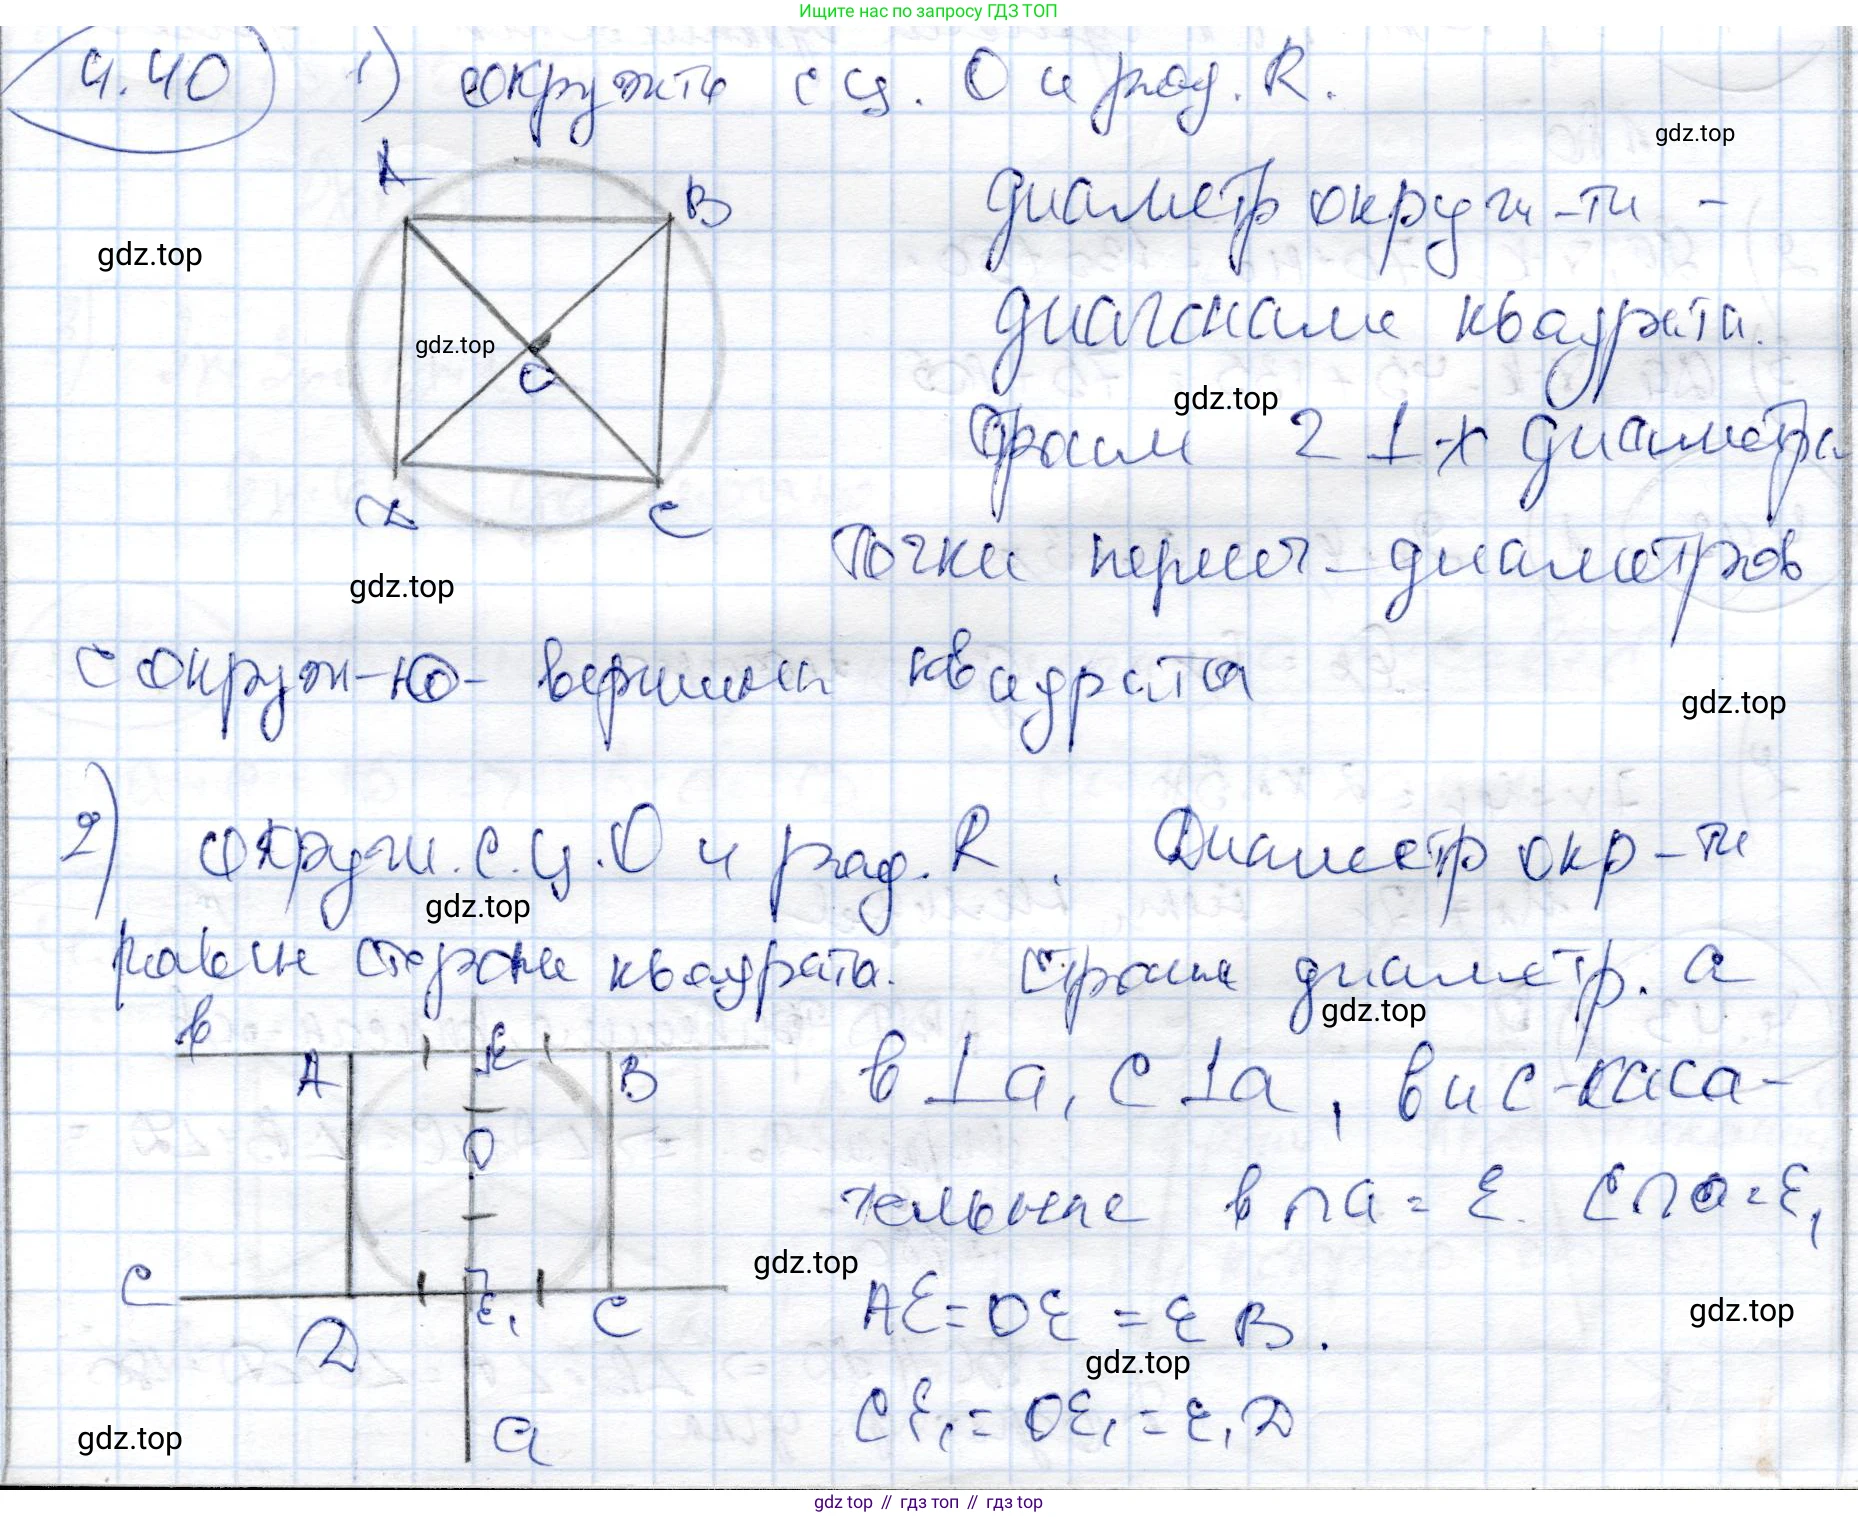 Ищите нас по запросу ГДЗ ТОП
4.40 1) окружть с ц. O и рад. R.
gdz.top
A
B
диаметр окруж-ти -
gdz.top
диагонали квадрата.
gdz.top
O
gdz.top
Строим 2 ⊥-х диаметра
D
C
точки пересеч- диаметров
gdz.top
с окруж-ю- вершины квадрата
gdz.top
2) окружн. с. ц. O и рад. R. Диаметр окр-ти
gdz.top
равен стороне квадрата. Строим диаметр. a
gdz.top
b
A
E
B
b⊥a, c⊥a, b и c-каса-
O
тельные b∩a=E. c∩a=E₁
gdz.top
c
D
E₁
C
AE=OE=EB.
gdz.top
gdz.top
CE₁=OE₁=E₁D
gdz.top
a
gdz top // гдз топ // гдз top